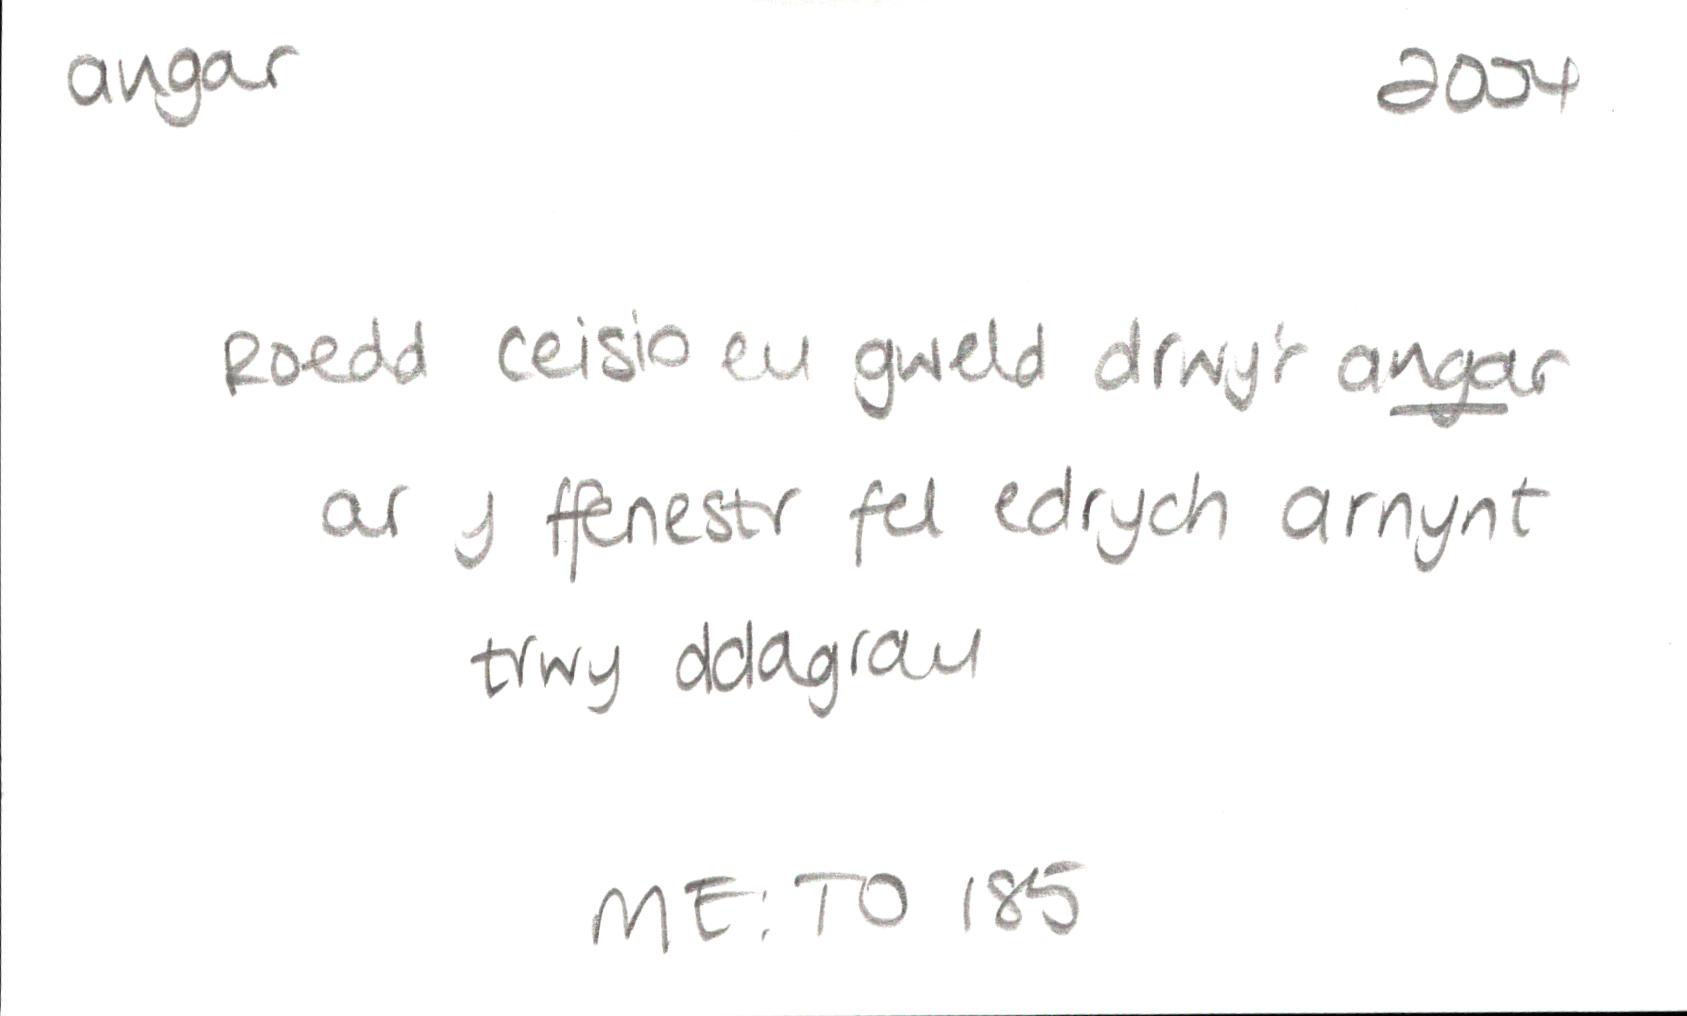 angar 2004
Roedd ceisio eu gweld drwy'r angar
ar y ffenestr fel edrych arnynt
trwy ddagrau
ME: TO 185